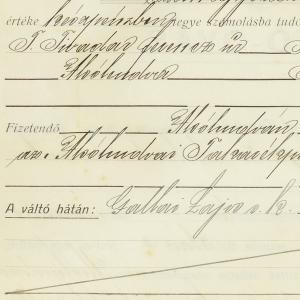 értéke készpénzben megye számolásba tudo
T. Tibódar Ferencz úr
Alsólendva
Fizetendő Alsólendván,
az. Alsólendvai Takarékp
A váltó hátán: Gálbái Lajos s. k.